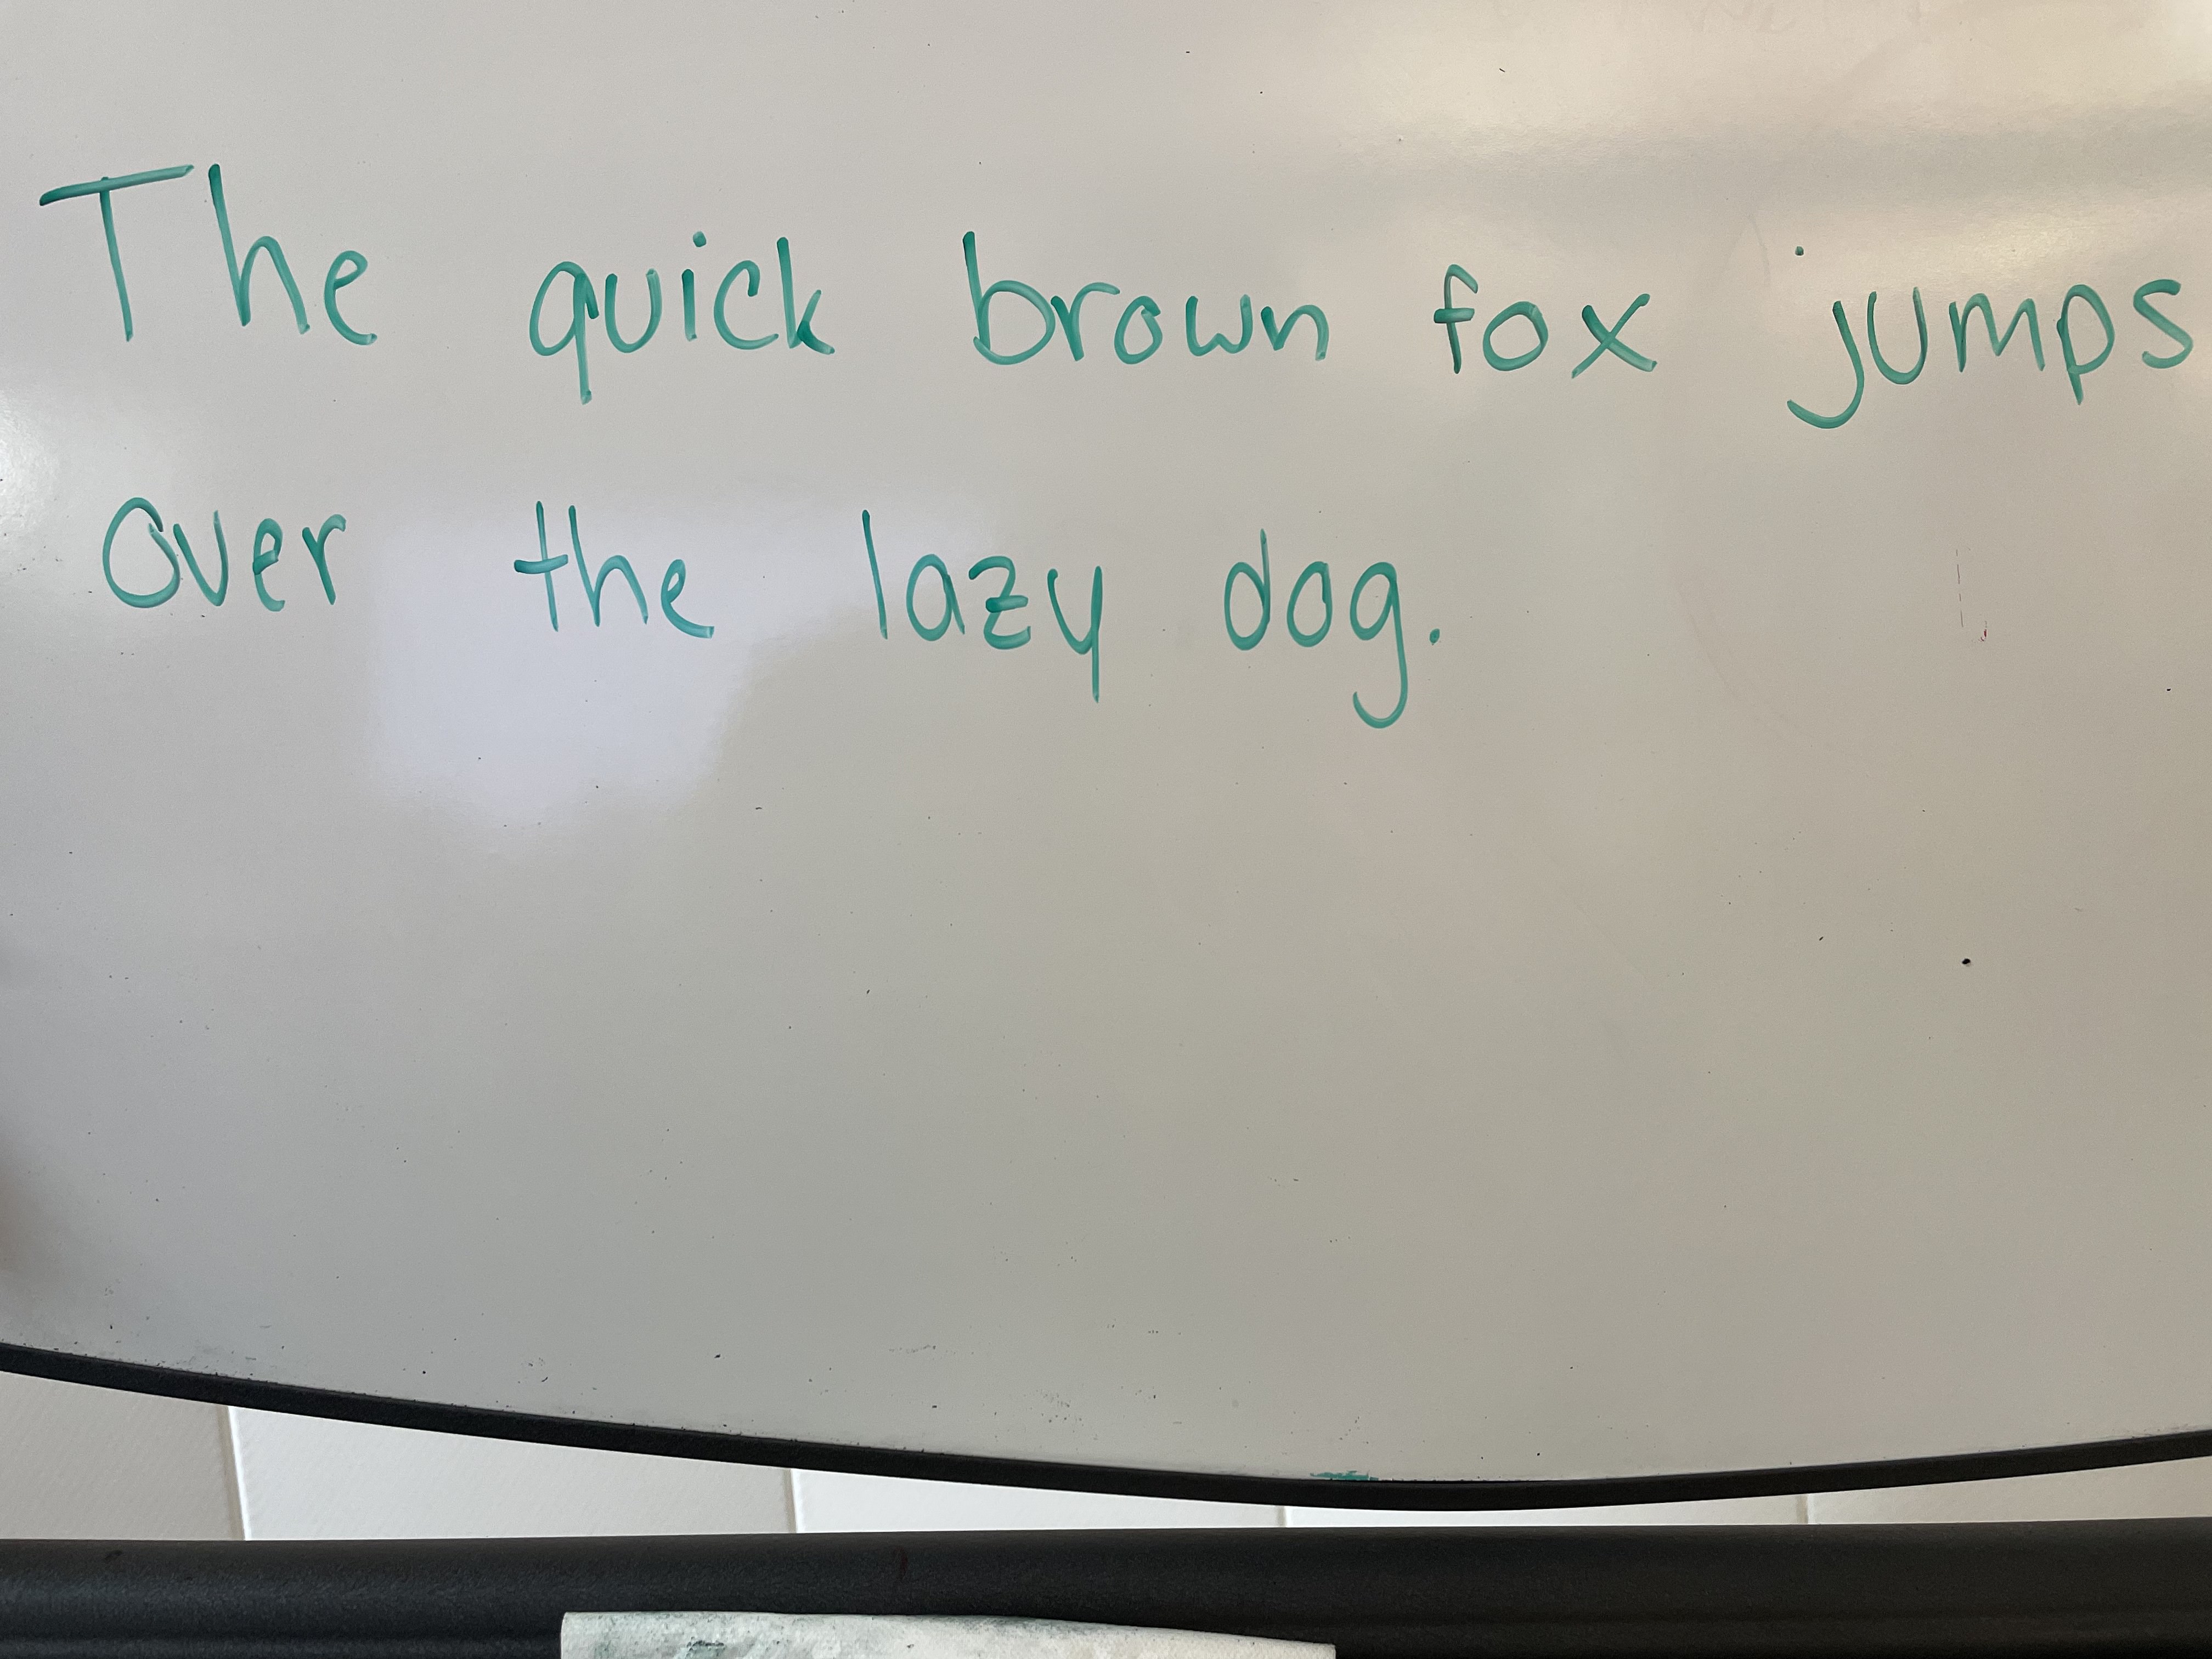 The quick brown fox jumps
over the lazy dog.